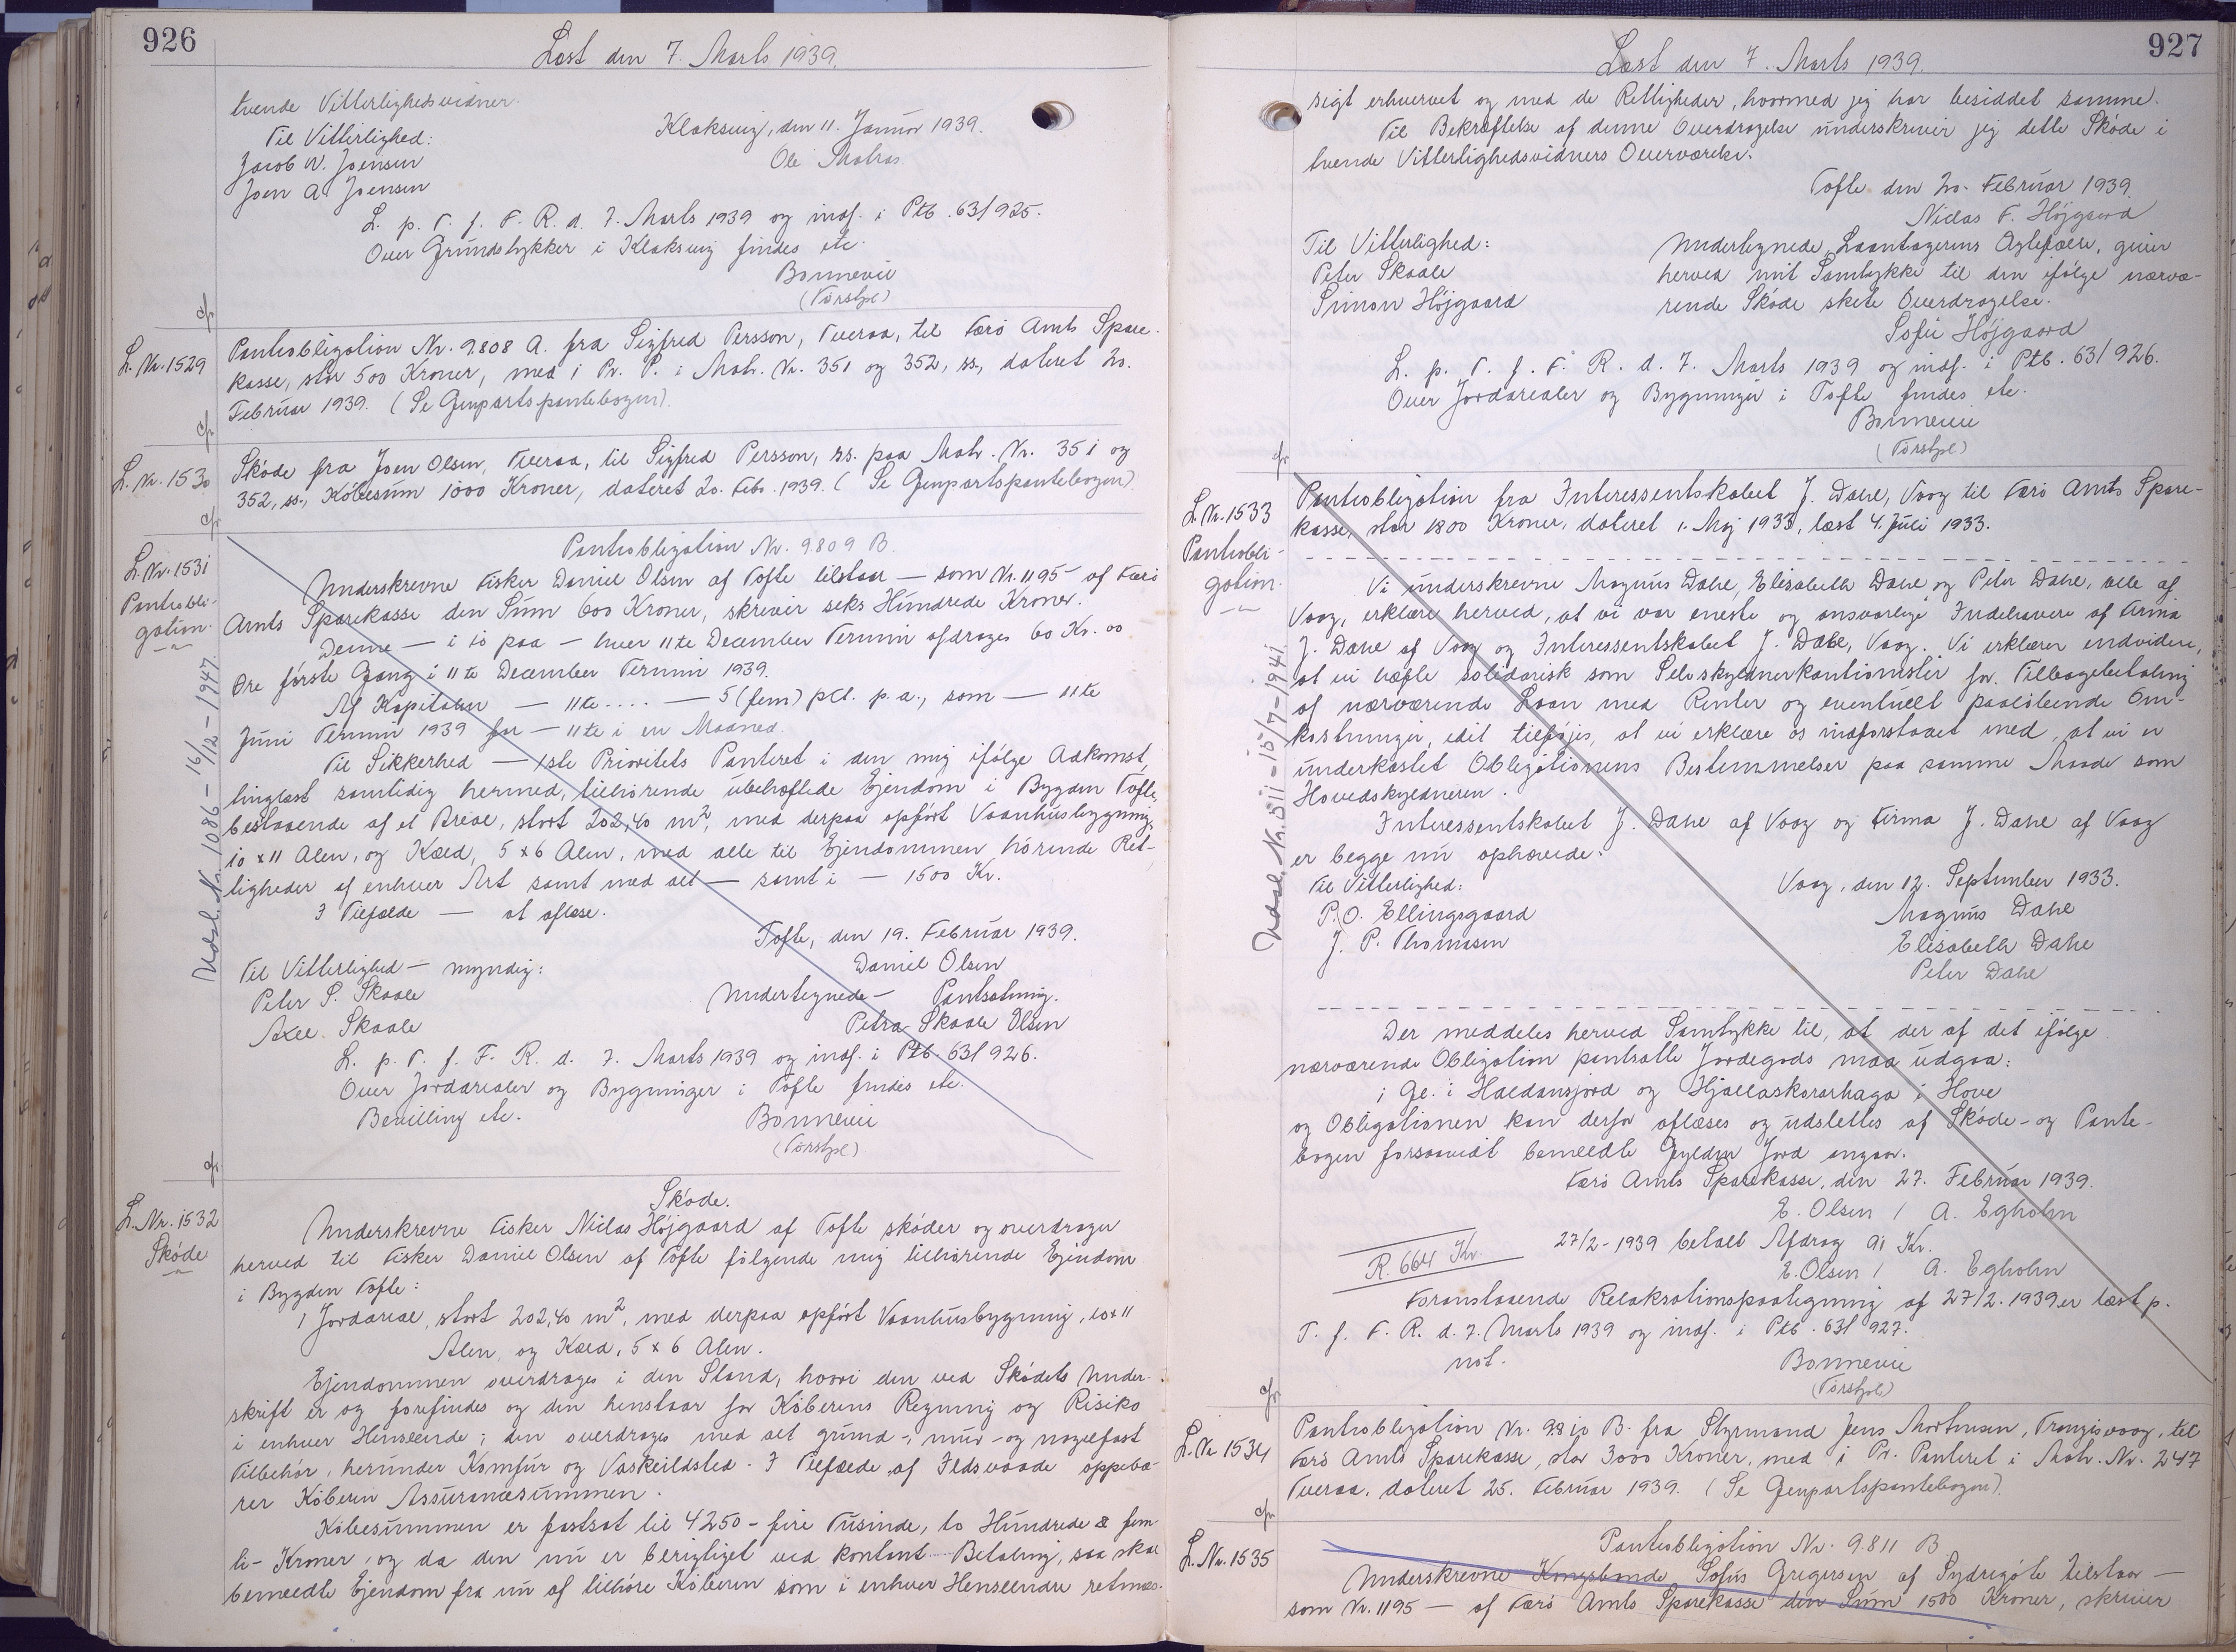 926
Læst den 7. Marts 1939.
tvende Vitterlighedsvidner.
Til Vitterlighed:
Klaksvig, den 11. Januar 1939.
Jacob W. Joensen
Ole Matras
Joen A. Joensen
L. p. T. f. F. R. d. 7. Marts 1939 og indf. i Ptb. 63/925.
Over Grundstykker i Klaksvig findes etc.
Bonnevie
(Torshpl)
L. Nr. 1529
Pantobligation Nr. 9808 A. fra Sigfred Persson, Tveraa, til Færø Amts Spare-
kasse, stor 500 Kroner, med 1 Pr. P. i Matr. Nr. 351 og 352, ss., dateret 20.
Februar 1939. (Se Genpartspantebogen).
L. Nr. 1530
Skøde fra Joen Olsen, Tveraa, til Sigfred Persson, ss. paa Matr. Nr. 351 og
352, ss., Købesum 1000 Kroner, dateret 20. Febr. 1939. (Se Genpartspantebogen)
L. Nr. 1531
Pantobli-
gation.
Udsl. Nr. 1086 - 16/12 - 1947.
Pantobligation Nr. 9809 B.
Underskrevne Fisker Daniel Olsen af Tofte tilstaar — som Nr. 1195 af Færø
Amts Sparekasse den Sum 600 Kroner, skriver seks Hundrede Kroner.
Denne — i 10 paa — hver 11te December Termin afdrages 60 Kr. 00
Øre første Gang i 11te December Termin 1939.
Af Kapitalen — 11te .... — 5 (fem) pCt. p. a., som — 11te
Juni Termin 1939 for — 11te i en Maaned.
Til Sikkerhed — 1ste Prioritets Panteret i den mig ifølge Adkomst,
tinglæst samtidig hermed, tilhørende ubehæftede Ejendom i Bygden Tofte,
bestaaende af et Areal, stort 202,40 m², med derpaa opført Vaanhusbygning,
10 x 11 Alen, og Kæld, 5 x 6 Alen, med alle til Ejendommen hørende Ret-
tigheder af enhver Art samt med alt — samt i — 1500 Kr.
I Tilfælde — at aflæse.
Tofte, den 19. Februar 1939.
Til Vitterlighed — myndig:
Daniel Olsen
Peter S. Skaale
Undertegnede — Pantsætning.
Axel Skaale
Petra Skaale Olsen
L. p. T. f. F. R. d. 7. Marts 1939 og indf. i Ptb. 63/926.
Over Jordarealer og Bygninger i Tofte findes etc.
Bevilling etc.
Bonnevie
(Torshpl)
L. Nr. 1532
Skøde
Skøde.
Underskrevne Fisker Niclas Højgaard af Tofte skøder og overdrager
herved til Fisker Daniel Olsen af Tofte følgende mig tilhørende Ejendom
i Bygden Tofte:
1 Jordareal, stort 202,40 m², med derpaa opført Vaanhusbygning, 10 x 11
Alen, og Kæld, 5 x 6 Alen.
Ejendommen overdrages i den Stand, hvori den ved Skødets Under-
skrift er og forefindes og den henstaar for Køberens Regning og Risiko
i enhver Henseende; den overdrages med alt grund-, mur- og nagelfast
Tilbehør, herunder Komfur og Vaskeildsted. I Tilfælde af Ildsvaade oppebæ-
rer Køberen Assurancesummen.
Købesummen er fastsat til 4250 - fire Tusinde, to Hundrede & fem-
ti - Kroner, og da den nu er berigtiget ved kontant Betaling, saa skal
bemeldte Ejendom fra nu af tilhøre Køberen som i enhver Henseende retmæs-
927
Læst den 7. Marts 1939.
sigt erhvervet og med de Rettigheder, hvormed jeg har besiddet samme.
Til Bekræftelse af denne Overdragelse underskriver jeg dette Skøde i
tvende Vitterlighedsvidners Overværelse.
Tofte den 20. Februar 1939.
Niclas F. Højgaard
Til Vitterlighed:
Undertegnede, Laantagerens Ægtefælle, giver
Peter Skaale
herved mit Samtykke til den ifølge nærvæ-
Simon Højgaard
rende Skøde skete Overdragelse.
Sofie Højgaard
L. p. T. f. F. R. d. 7. Marts 1939 og indf. i Ptb. 63/926.
Over Jordarealer og Bygninger i Tofte findes etc.
Bonnevie
(Torshpl)
L. Nr. 1533
Pantobli-
gation.
Udsl. Nr. 511 - 15/7 - 1941
Pantobligation fra Interessentskabet J. Dahl, Vaag til Færø Amts Spare-
kasse, stor 1800 Kroner, dateret 1. Maj 1933, læst 4. Juli 1933.
Vi underskrevne Magnus Dahl, Elisabeth Dahl og Peter Dahl, alle af
Vaag, erklære herved, at vi var eneste og ansvarlige Indehavere af Firma
J. Dahl af Vaag og Interessentskabet J. Dahl, Vaag. Vi erklærer endvidere,
at vi hæfte solidarisk som Selvskyldnerkautionister for Tilbagebetaling
af nærværende Laan med Renter og eventuelt paaløbende Om-
kostninger, idet tilføjes, at vi erklære os indforstaaet med, at vi er
underkastet Obligationens Bestemmelser paa samme Maade som
Hovedskyldneren.
Interessentskabet J. Dahl af Vaag og Firma J. Dahl af Vaag
er begge nu ophævede.
Til Vitterlighed:
Vaag, den 12. September 1933.
P. O. Ellingsgaard
Magnus Dahl
J. P. Thomsen
Elisabeth Dahl
Peter Dahl
Der meddeles herved Samtykke til, at der af det ifølge
nærværende Obligation pantsatte Jordegods maa udgaa:
1 Gl. i Haldansjord og Hjallaskorarhaga i Hove
og Obligationen kan derfor aflæses og udslettes af Skøde- og Pante-
bogen forsaavidt bemeldte Gylden Jord angaar.
Færø Amts Sparekasse, den 27. Februar 1939.
E. Olsen / A. Egholm
R. 664 Kr.
27/2 - 1939 betalt Afdrag 91 Kr.
E. Olsen / A. Egholm
Foranstaaende Relaksationspaategning af 27/2. 1939 er læst p.
T. f. F. R. d. 7. Marts 1939 og indf. i Ptb. 63/927.
not.
Bonnevie
(Torshpl)
L. Nr. 1534
Pantobligation Nr. 9810 B. fra Styrmand Jens Mortensen, Trangisvaag, til
Færø Amts Sparekasse, stor 3000 Kroner, med 1 Pr. Panteret i Matr. Nr. 247
Tveraa, dateret 25. Februar 1939. (Se Genpartspantebogen).
L. Nr. 1535
Pantobligation Nr. 9811 B
Underskrevne Kongsbonde Sofus Gregersen af Sydregøte tilstaar —
som Nr. 1195 — af Færø Amts Sparekasse den Sum 1500 Kroner, skriver